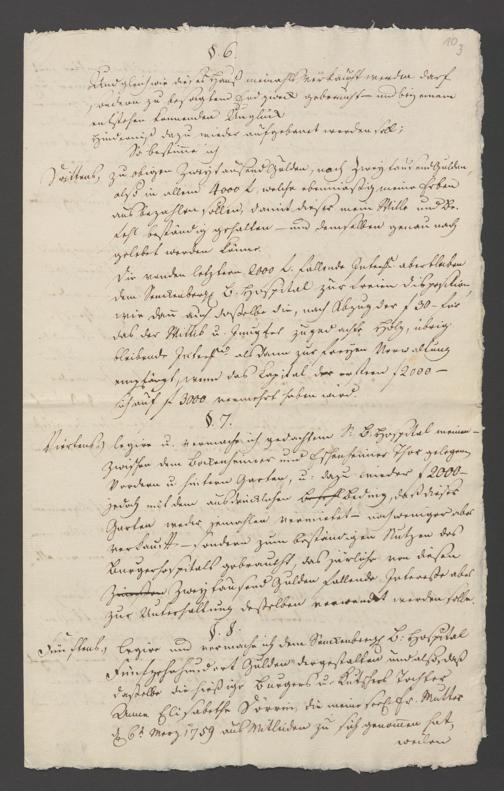 10
3
§. 6.
Und gleich wie dieses Hauß niemahls verkauft werden darf
sondern zu besagtem Endzweck gebraucht – und bey einem
entstehen könnenden Unglück
Hinderniß dazu wieder aufgebauet werden soll;
So bestimme ich
Drittens, zu obigen Zweytausend Gulden, noch Zweytausend Gulden,
also in allem 4000 f. welche ebenmäsig meine Erben
auszahlen sollen, damit dieses mein Wille und Be-
fehl beständig gehalten – und demselben genau nach
gelebet werden könne.
Die von den letztern 2000 f. fallende Interesse aber bleiben
dem Senckenberg. B. Hospital zur freien Disposition
wie dann auch dasselbe die, nach Abzug der f 30 – für
das der Wittib u. zugedachte Holz, übrig
bleibende Interesse alsdann zur freyen Verwaltung
empfängt, wenn das Capital der erstern f 2000 –
sich auf f 3000 vermehrt haben wird.
§. 7.
Viertens, legire u. vermache ich gedachtem B. Hospital meinen –
zwischen dem Bockenheimer und Eschenheimer Thor gelegenen
vordern u. hintern Garten, u. dazu wieder f 2000 –
jedoch mit dem ausdrücklichen Beding, daß dieser
Garten weder jemahlen vermietet – noch weniger aber
verkauft – sondern zum beständigen Nutzen des
Burgerhospitals gebraucht, das järliche von diesen
Zweytausend Gulden fallende Interesse aber
zur Unterhaltung desselben verwendet werden solle.
§. 8.
Fünftens, legire und vermache ich dem Senckenberg. B. Hospital
Fünfzehnhundert Gulden dergestalten und also, daß
dasselbe die hiesige Burgers u. Kutschers Tochter
Anna Elisabetha, die meine seel. Fr. Mutter
d. 6t. Merz 1759 aus Mitleiden zu sich genommen hat,
weilen